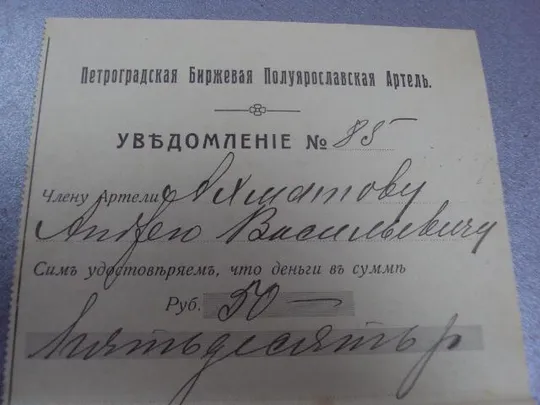 Петроградская Биржевая Полуярославская Артель.
УВѢДОМЛЕНІЕ № 85
Члену Артели Ахматову
Андрею Васильевичу
Симъ удостовѣряемъ, что деньги въ суммѣ
Руб. 50 —
Пятьдесять р